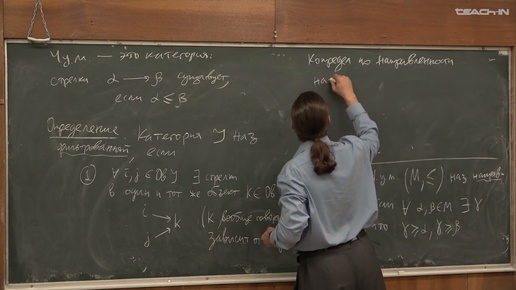 teach-in
Ч.у.м — это категория:
стрелка α → β существует,
если α ≤ β
Определение. Категория J наз
фильтрованной, если
① ∀ i, j ∈ Ob J ∃ стрелки
в один и тот же объект K ∈ Ob
i
→ k
j
(K вообще
зависит от
Копредел по направленности
на
ч.у.м. (M, ≤) наз направ
∀ α, β ∈ M ∃ γ
что γ ≥ α, γ ≥ β